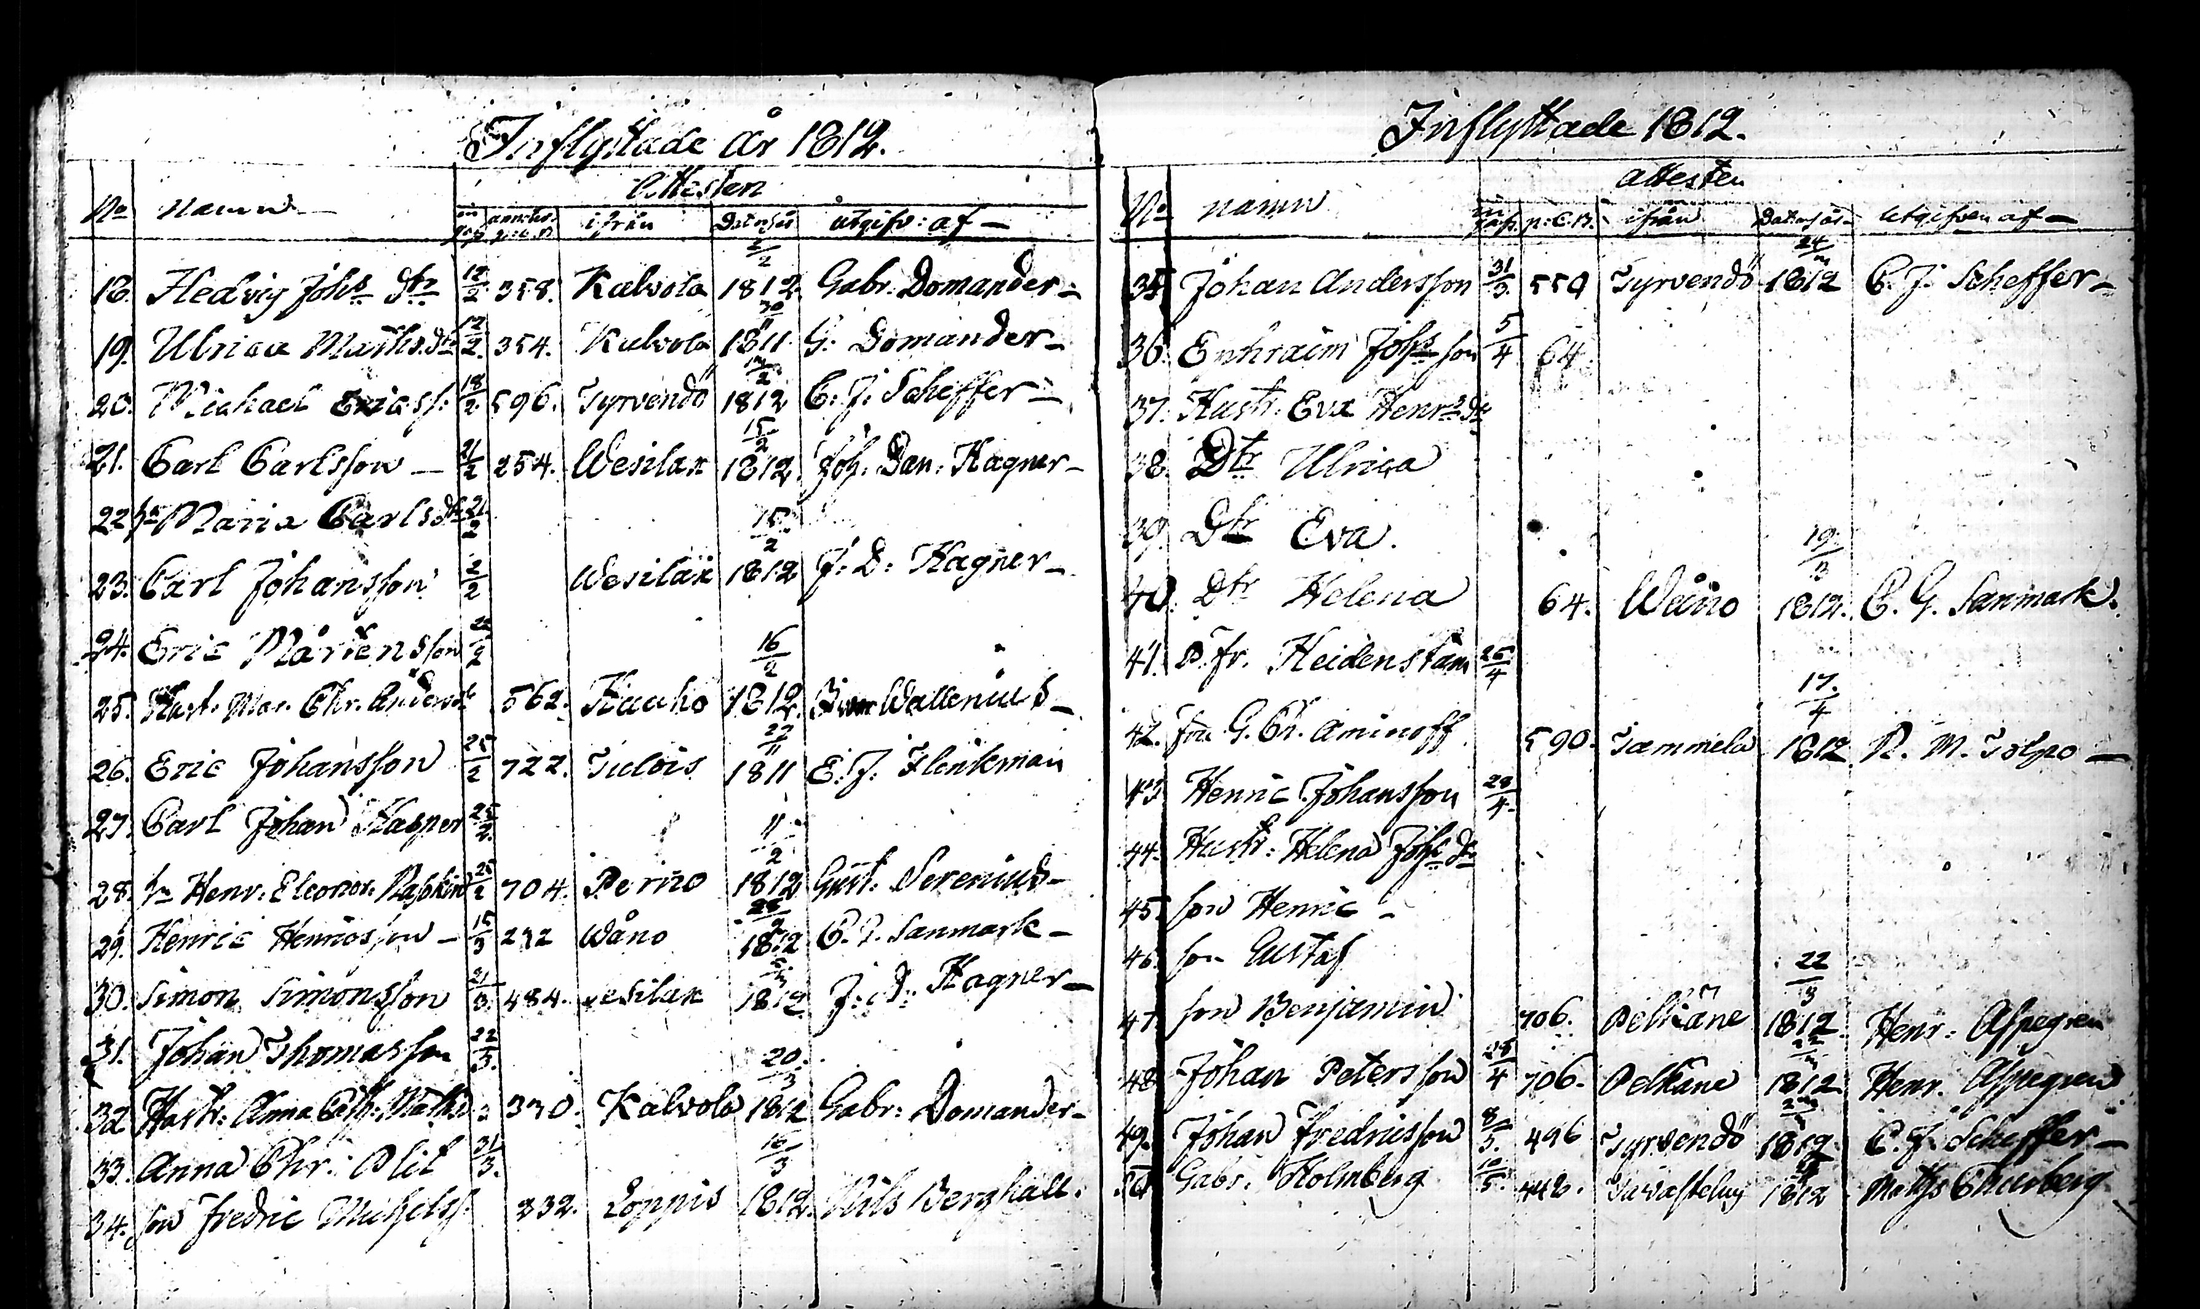 Inflyttade År 1812.
Attesten
No namn ifrån Dat. o. år utgifv: af
18. Hedvig Johs dtr 12/2 358. Kalvola 2/2 1812 Gabr. Domander
19. Ulrica Matts. dtr 12/2. 354. Kalvola 30/11 1811 G. Domander
20. Michael Ericss. 18/2 596. Tyrvendö 1812 C. J. Scheffer
21. Carl Carlsson 21/2 254. Wesilax 15/2 1812 Joh. Dan. Hagner
22. Maria Carlsdtr 21/2
23. Carl Johansson 2/2 Wesilax 15/2 1812 J. D. Hagner
24. Eric Mårtensson
25. Hust. Mar. Chr. Andersd 562. Hauho 16/2 1812 Wallenius
26. Eric Johansson 25/2 722. Tulois 27/11 1811 E. J. Flinkman
27. Carl Johan Kasper 25/2
28. Henr. Eleonor. 25/2 704. Perno 11/2 1812 Gust. Serenius
29. Henric Henricsson 15/3 232 Wåno 1812 Sanmark
30. Simon Simonsson 21/3 484. esilax 1812 J. D. Hagner
31. Johan Thomasson 22/3.
32. Hustr. Anna Math. 330. Kalvola 20/3 1812 Gabr. Domander
33. Anna Chr. Blit 31/3.
34. son Fredric Michelss. 332. Loppis 16/3 1812 Nils Berghäll.
Inflyttade 1812.
attesten
No namn p. C. B. ifrån Dat. o. år utgifven af
35. Johan Andersson 31/3. 550 Tyrvendö 24/3 1812 C. J. Scheffer
36. Enhraim Johs son 5/4 64
37. Hustr. Eva Henrs dtr
38. Dtr Ulrica
39. Dtr Eva.
40. Dtr Helena 64. Wåno 19/3 1812. C. G. Sanmark.
41. B. fr. Heidenstam 26/4
42. fru G. Ch. Aminoff 590. Tammela 17/4 1812 N. M. Tolpo
43. Henric Johansson 28/4.
44. Hustr. Helena Johs dr
45. son Henric
46. son Gustaf
47. son Benjamin 706. Pelkäne 22/3 1812 Henr. Aspegren
48. Johan Petersson 28/4 706. Pelkäne 22/3 1812 Henr. Aspegren
49. Johan Fredricsson 8/5. 496 Tyrvendö 1812 C. J. Scheffer
50. Gabr. Holmberg 10/5. 446. Tavastehus 1812 Matths Churberg